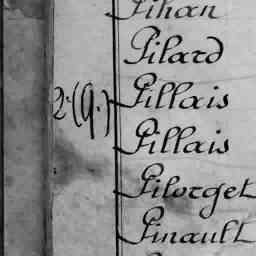 Pihan
Pilard
2.(9.) Pillais
Pillais
Pilorget
Pinault